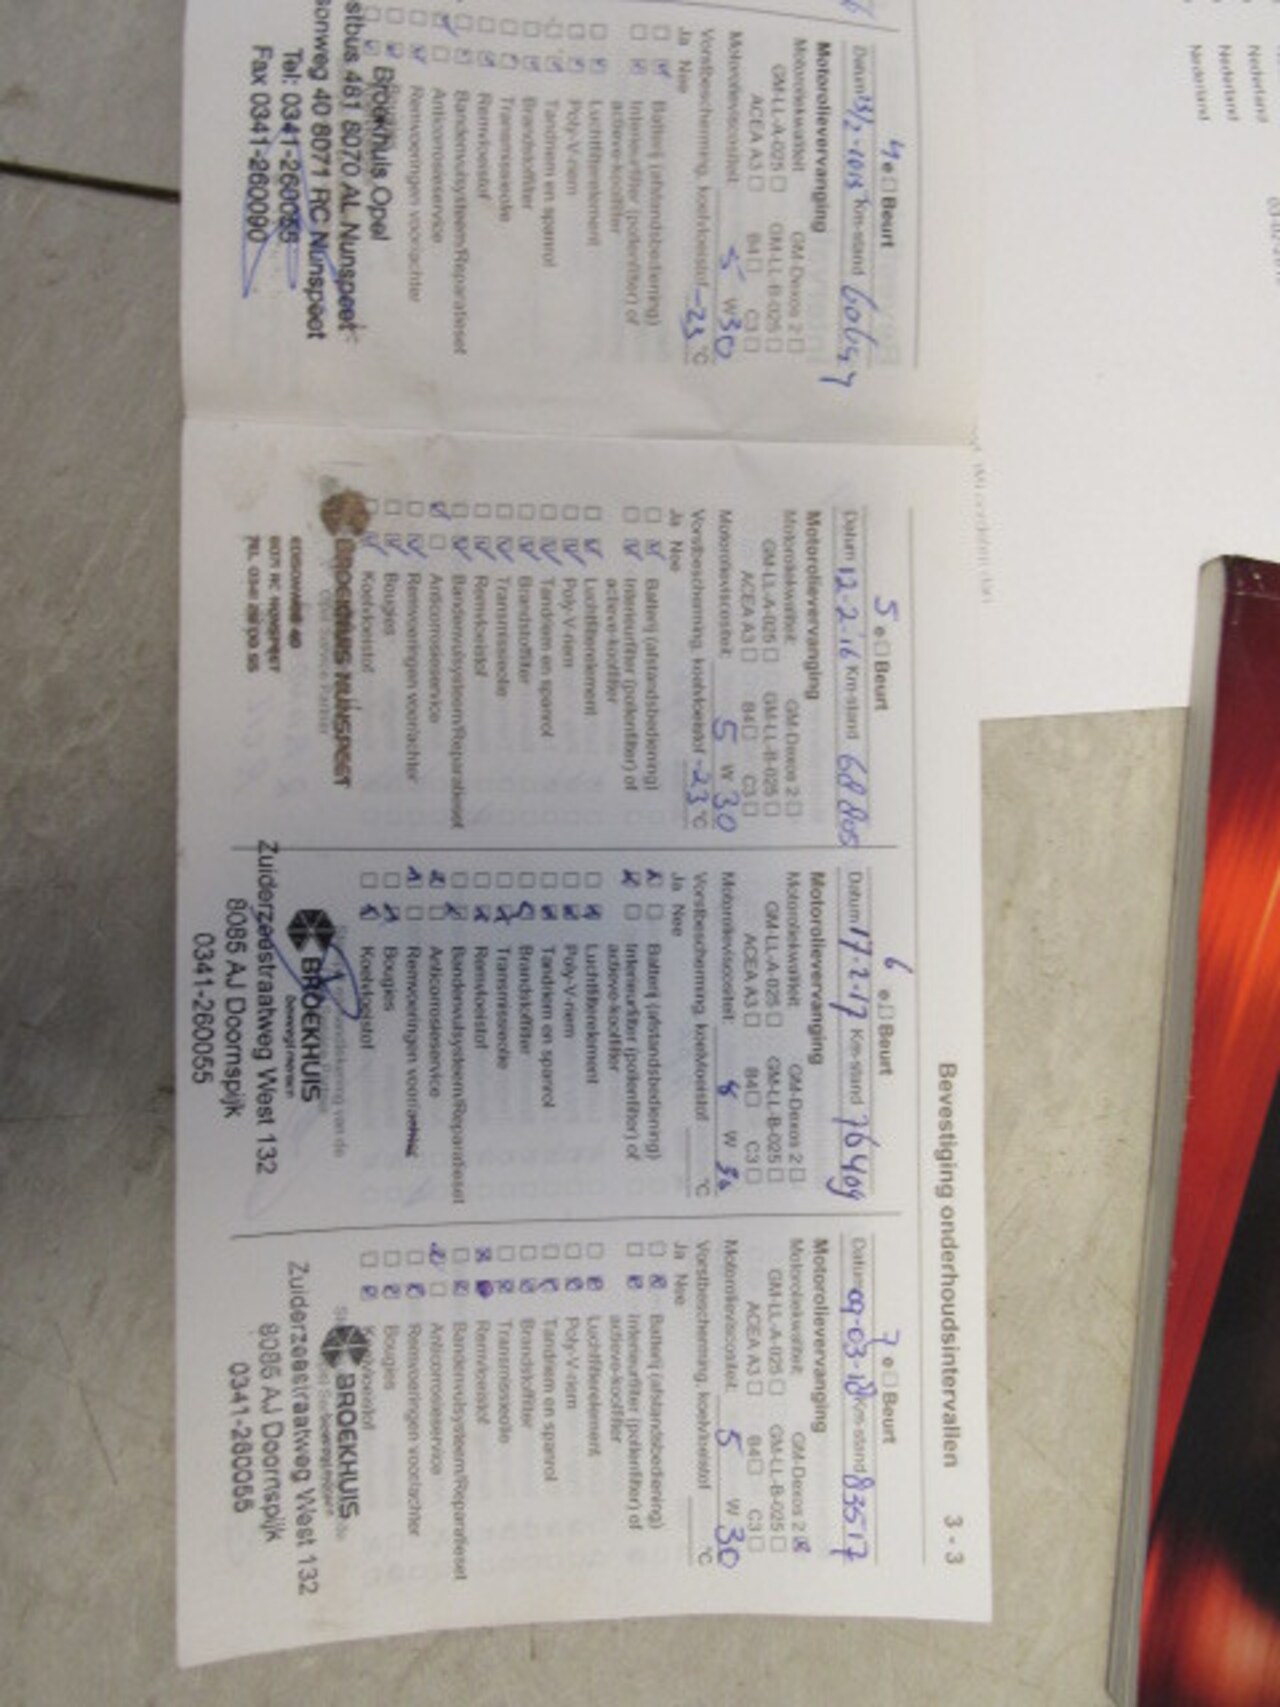 Nederland
Nederland
Nederland
Bevestiging onderhoudsintervallen 3 - 3
4 e □ Beurt
Datum Km-stand
Motorolievervanging
Motoroliekwaliteit: GM-Dexos 2 □
GM-LL-A-025 □ GM-LL-B-025 □
ACEA A3 □ B4 □ C3 □
Motorolieviscositeit: 5 W 30
Vorstbescherming, koelvloeistof -23 °C
Ja Nee
Batterij (afstandsbediening)
Interieurfilter (pollenfilter) of
actieve-koolfilter
Luchtfilterelement
Poly-V-riem
Tandriem en spanrol
Brandstoffilter
Transmissieolie
Remvloeistof
Bandenvulsysteem/Reparatieset
Anticorrosieservice
Remvoeringen voor/achter
Broekhuis Opel
stbus 481 8070 AL Nunspeet
sonweg 40 8071 RC Nunspeet
Tel: 0341-260055
Fax 0341-260090
5 e □ Beurt
Datum 12-2-16 Km-stand 68805
Motorolievervanging
Motoroliekwaliteit: GM-Dexos 2 □
GM-LL-A-025 □ GM-LL-B-025 □
ACEA A3 □ B4 □ C3 □
Motorolieviscositeit: 5 W 30
Vorstbescherming, koelvloeistof -23 °C
Ja Nee
Batterij (afstandsbediening)
Interieurfilter (pollenfilter) of
actieve-koolfilter
Luchtfilterelement
Poly-V-riem
Tandriem en spanrol
Brandstoffilter
Transmissieolie
Remvloeistof
Bandenvulsysteem/Reparatieset
Anticorrosieservice
Remvoeringen voor/achter
Bougies
Koelvloeistof
BROEKHUIS NUNSPEET
Opel Service Partner
EDISONWEG 40
8071 RC NUNSPEET
TEL 0341 26 00 55
6 e □ Beurt
Datum 17-2-17 Km-stand 76409
Motorolievervanging
Motoroliekwaliteit: GM-Dexos 2 □
GM-LL-A-025 □ GM-LL-B-025 □
ACEA A3 □ B4 □ C3 □
Motorolieviscositeit: W 30
Vorstbescherming, koelvloeistof °C
Ja Nee
Batterij (afstandsbediening)
Interieurfilter (pollenfilter) of
actieve-koolfilter
Luchtfilterelement
Poly-V-riem
Tandriem en spanrol
Brandstoffilter
Transmissieolie
Remvloeistof
Bandenvulsysteem/Reparatieset
Anticorrosieservice
Remvoeringen voor/achter
Bougies
Koelvloeistof
BROEKHUIS
beweegt mensen
Zuiderzeestraatweg West 132
8085 AJ Doornspijk
0341-260055
7 e □ Beurt
Datum 09-03-18 Km-stand 83517
Motorolievervanging
Motoroliekwaliteit: GM-Dexos 2 ☒
GM-LL-A-025 □ GM-LL-B-025 □
ACEA A3 □ B4 □ C3 □
Motorolieviscositeit: 5 W 30
Vorstbescherming, koelvloeistof °C
Ja Nee
Batterij (afstandsbediening)
Interieurfilter (pollenfilter) of
actieve-koolfilter
Luchtfilterelement
Poly-V-riem
Tandriem en spanrol
Brandstoffilter
Transmissieolie
Remvloeistof
Bandenvulsysteem/Reparatieset
Anticorrosieservice
Remvoeringen voor/achter
Bougies
Koelvloeistof
BROEKHUIS
Zuiderzeestraatweg West 132
8085 AJ Doornspijk
0341-260055